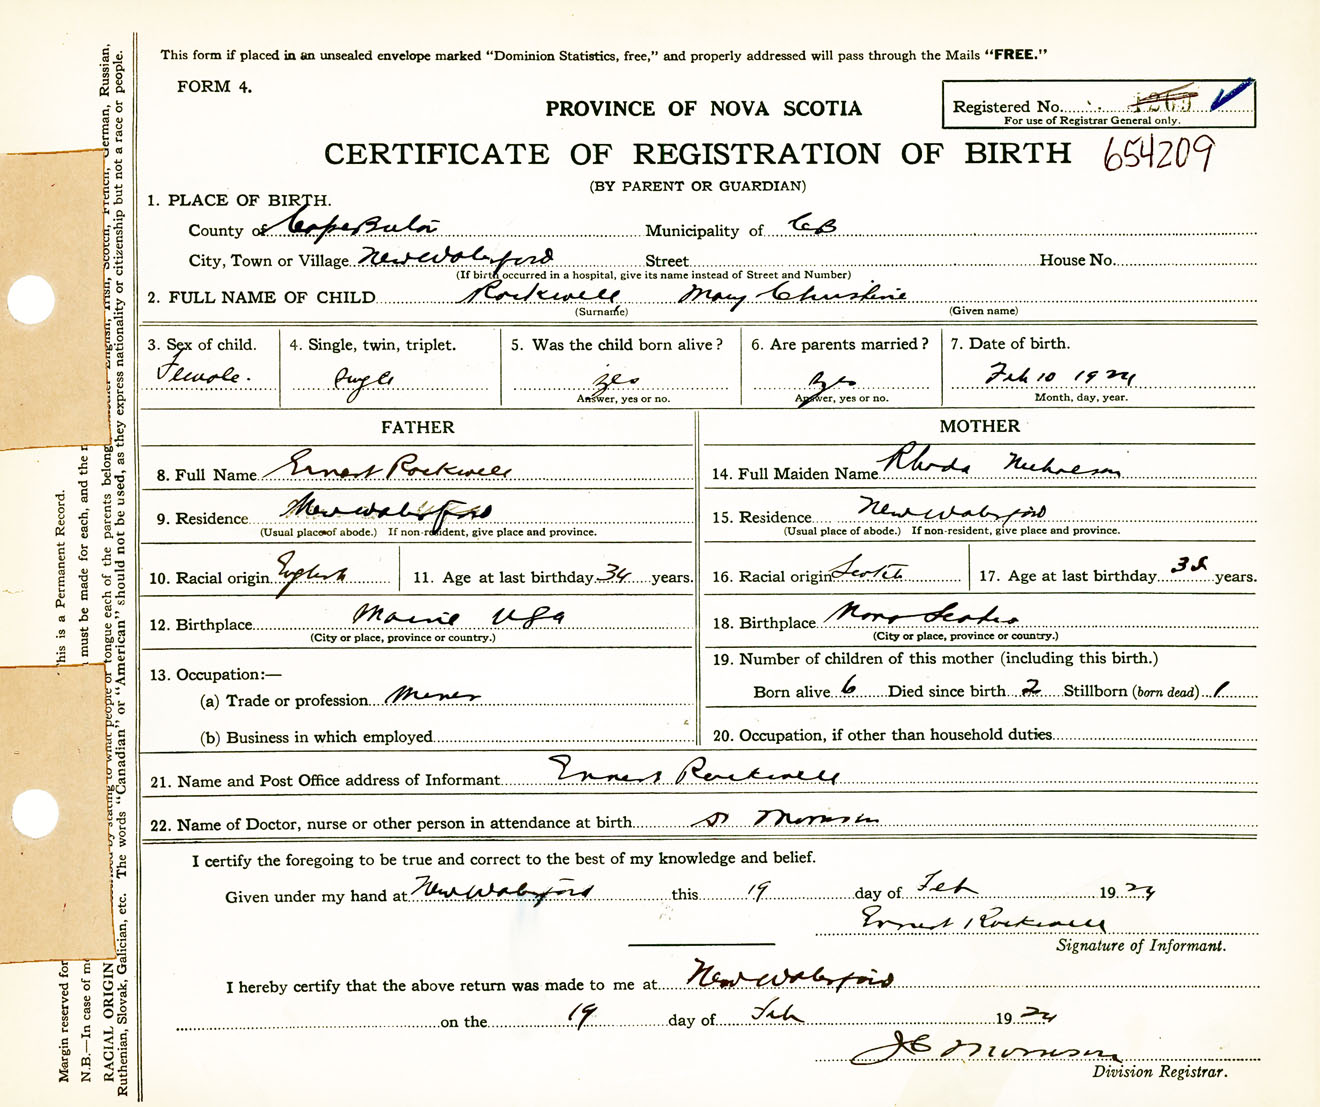 This form if placed in an unsealed envelope marked "Dominion Statistics, free," and properly addressed will pass through the Mails "FREE."
FORM 4.
PROVINCE OF NOVA SCOTIA
Registered No.
For use of Registrar General only.
CERTIFICATE OF REGISTRATION OF BIRTH 654209
(BY PARENT OR GUARDIAN)
1. PLACE OF BIRTH.
County of Cape Breton Municipality of CB
City, Town or Village New Waterford Street House No.
(If birth occurred in a hospital, give its name instead of Street and Number)
2. FULL NAME OF CHILD Rockwell Mary Christine
(Surname) (Given name)
3. Sex of child. 4. Single, twin, triplet. 5. Was the child born alive? 6. Are parents married? 7. Date of birth.
Female. Single yes yes Feb 10 1924
Answer, yes or no. Answer, yes or no. Month, day, year.
FATHER MOTHER
8. Full Name Ernest Rockwell 14. Full Maiden Name Rhoda Nicholson
9. Residence New Waterford 15. Residence New Waterford
(Usual place of abode.) If non-resident, give place and province. (Usual place of abode.) If non-resident, give place and province.
10. Racial origin English 11. Age at last birthday 34 years. 16. Racial origin Scotch 17. Age at last birthday years.
12. Birthplace Maine USA 18. Birthplace Nova Scotia
(City or place, province or country.) (City or place, province or country.)
19. Number of children of this mother (including this birth.)
13. Occupation:—
(a) Trade or profession Miner Born alive 6 Died since birth 2 Stillborn (born dead) 1
(b) Business in which employed 20. Occupation, if other than household duties
21. Name and Post Office address of Informant Ernest Rockwell
22. Name of Doctor, nurse or other person in attendance at birth Dr Morrison
I certify the foregoing to be true and correct to the best of my knowledge and belief.
Given under my hand at New Waterford this 19 day of Feb 1924
Ernest Rockwell
Signature of Informant.
I hereby certify that the above return was made to me at New Waterford
on the 19 day of Feb 1924
JC Morrison
Division Registrar.
Margin reserved for
his is a Permanent Record.
N.B.—In case of mo
must be made for each, and the n
RACIAL ORIGIN
tongue each of the parents belong
English, Irish, Scotch, French, German, Russian,
Ruthenian, Slovak, Galician, etc. The words "Canadian" or "American" should not be used, as they express nationality or citizenship but not a race or people.